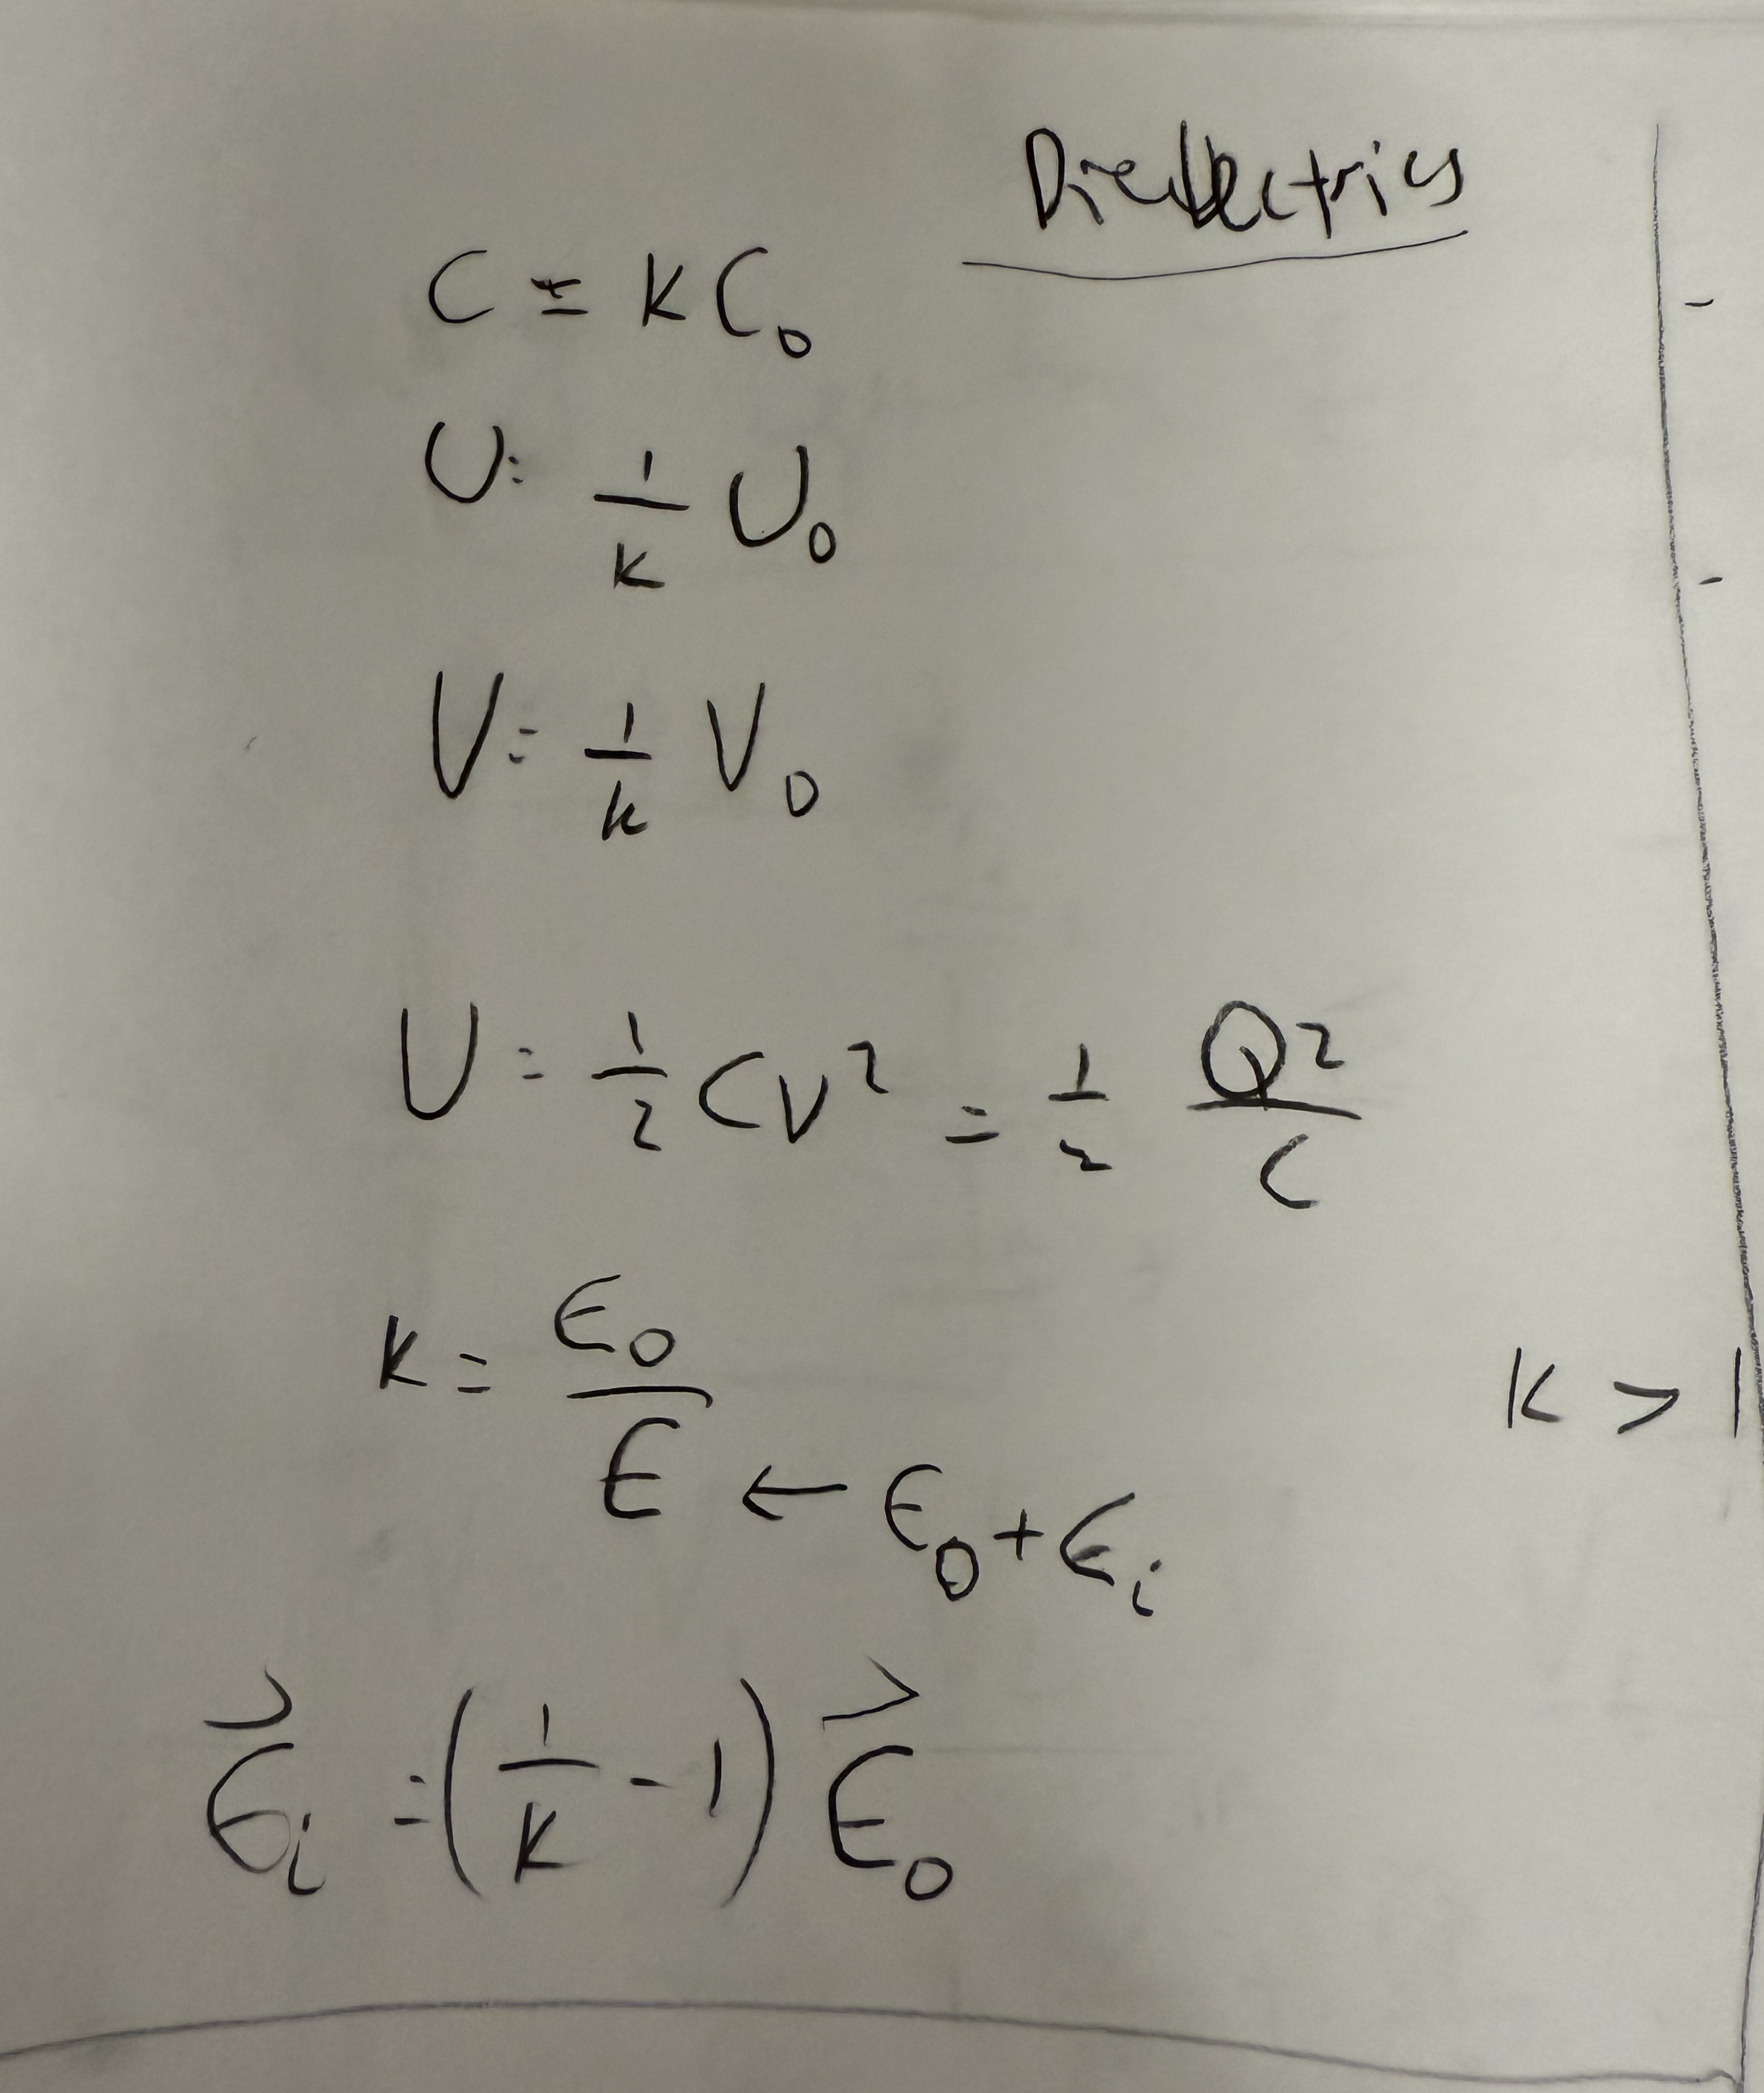 Dielectrics
C = KC₀
U = 1/K U₀
V = 1/k V₀
U = 1/2 CV² = 1/2 Q²/C
K = E₀/E ← E₀ + Eᵢ
K > 1
E⃗ᵢ = (1/K - 1) E⃗₀